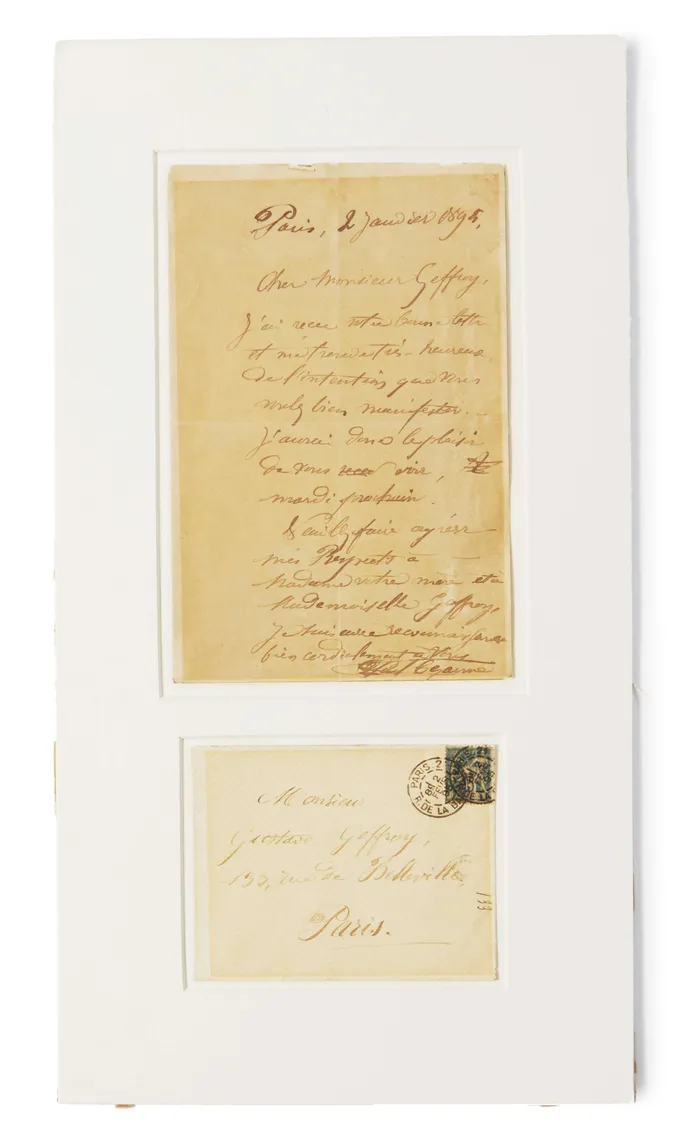 Paris, 2 Janvier 1895,
Cher Monsieur Geffroy,
J'ai reçu votre bonne lettre
et me trouve très-heureux
de l'intention que vous
voulez bien manifester.
J'aurai donc le plaisir
de vous voir,
mardi prochain.
Veuillez faire agréer
mes Respects à
Madame votre mère et à
Mademoiselle Geffroy,
Je suis avec reconnaissance
bien cordialement à vous
Paul Cézanne
PARIS 2
R. DE LA
Monsieur
Gustave Geffroy,
133, rue de Belleville,
133
Paris.